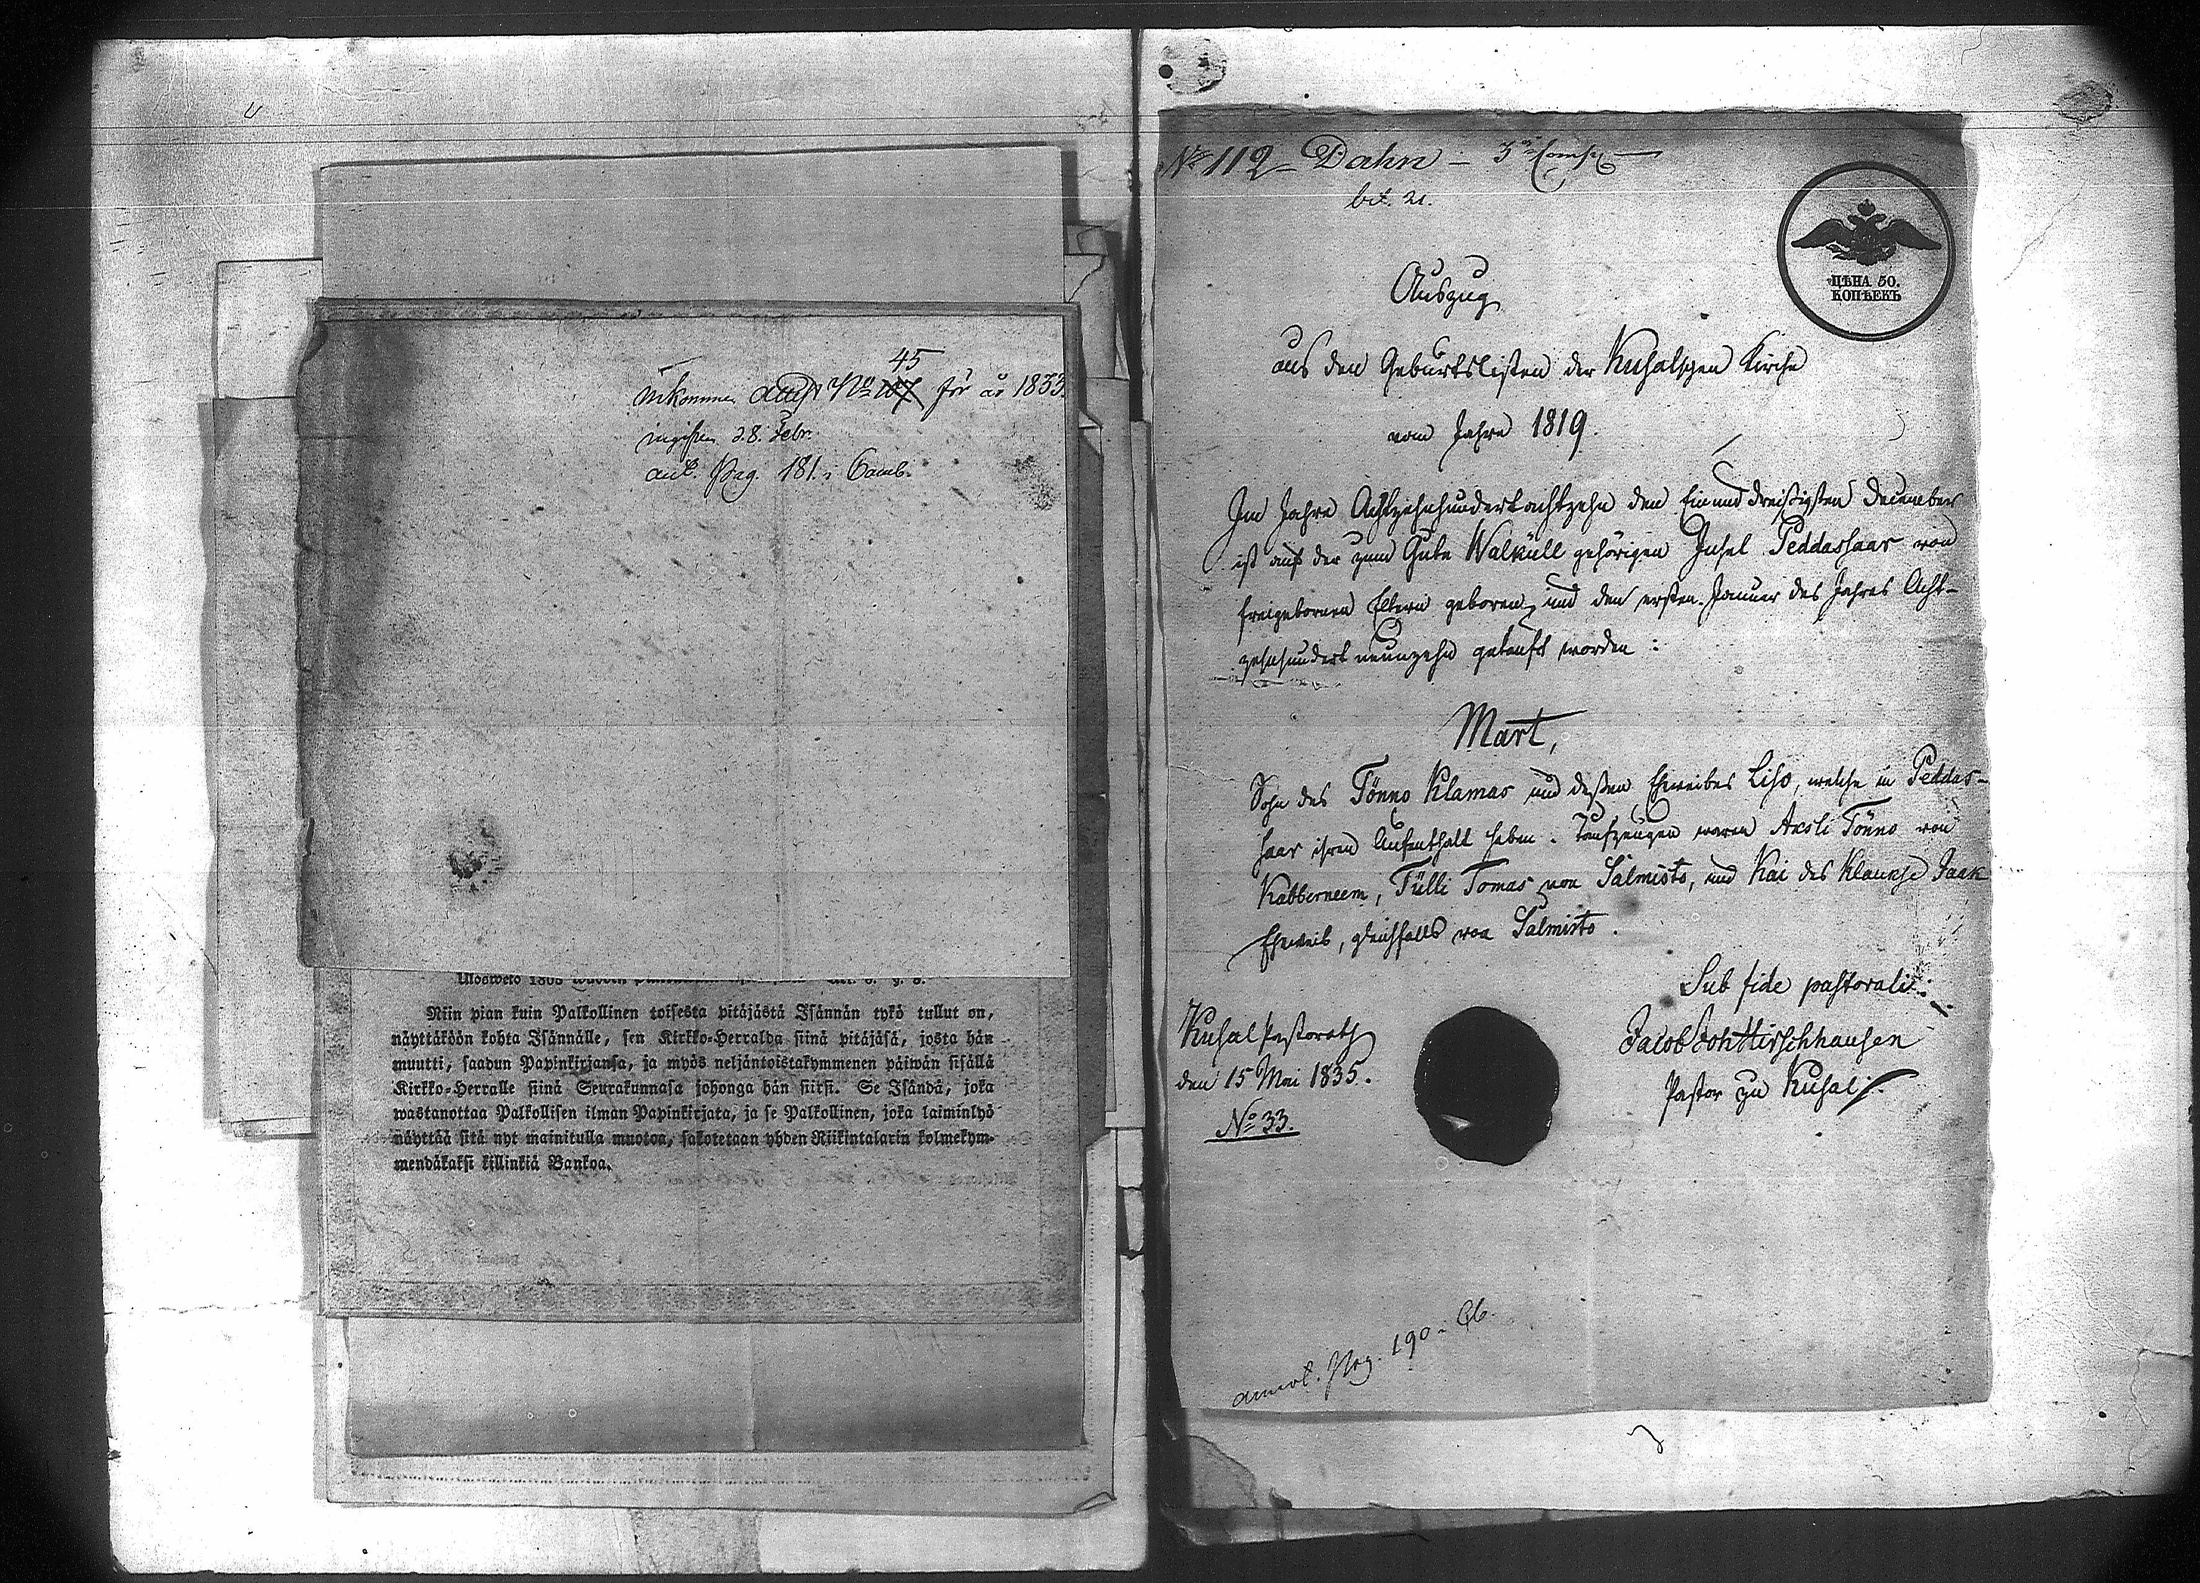 45
inkommen attest No 107 för år 1833.
ingifven 28. Febr.
ant. Pag. 181. i Comb.
Ulosweto 1808
Niin pian kuin Palkollinen toisesta pitäjästä Isännän tykö tullut on,
näyttäköön kohta Isännälle, sen Kirkko-Herralda siinä pitäjäsä, josta hän
muutti, saadun Papinkirjansa, ja myös neljäntoistakymmenen päiwän sisällä
Kirkko-Herralle siinä Seurakunnasa johonga hän siirsi. Se Isändä, joka
wastanottaa Palkollisen ilman Papinkirjata, ja se Palkollinen, joka laiminlyö
näyttää sitä nyt mainitulla muotoa, sakotetaan yhden Riikintalarin kolmekym-
mendäkaksi killinkiä Bankoa.
No 112 – Dahn – 3
bit. 21.
ЦѢНА 50.
КОПѢЕКЪ
Auszug
aus den Geburtslisten der Kusalschen Kirche
vom Jahre 1819.
Im Jahre Achtzehnhundertachtzehn den Einunddreißigsten December
ist auf der zum Gute Walküll gehörigen Insel Peddassaar von
freigebornen Eltern geboren, und den ersten Januar des Jahres Acht-
zehnhundert neunzehn getauft worden :
Mart,
Sohn des Tönno Klamas und deßen Eheweibes Liso, welche in Peddas-
saar ihren Aufenthalt haben. Taufzeugen waren Aesli Tönno von
Kabberneem, Tülli Tomas von Salmisto, und Kai des Klaukse Jaak
Eheweib, gleichfalls von Salmisto.
Sub fide pastorali:
Kusal Pastorath
den 15 Mai 1835.
No 33.
Jacob Joh Hirschhausen
Pastor zu Kusal.
annot. Pag. 190 i Cb.